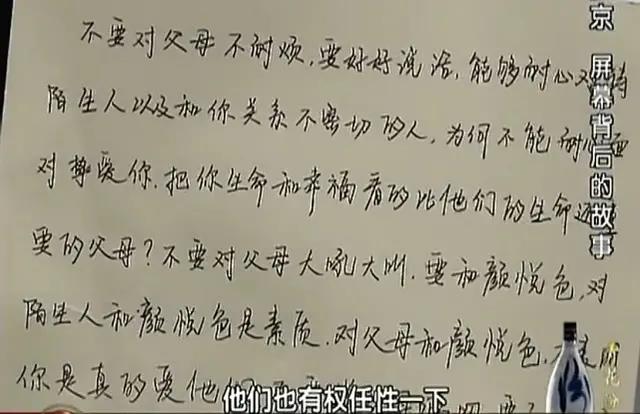 不要对父母不耐烦,要好好说话,能够耐心对待
陌生人以及和你关系不密切的人,为何不能耐心面
对挚爱你,把你生命和幸福看的比他们的生命还
要的父母?不要对父母大吼大叫.要和颜悦色,对
陌生人和颜悦色是素质.对父母和颜悦色.才
你是真的爱他
他们也有权任性一下
京 屏幕背后的故事